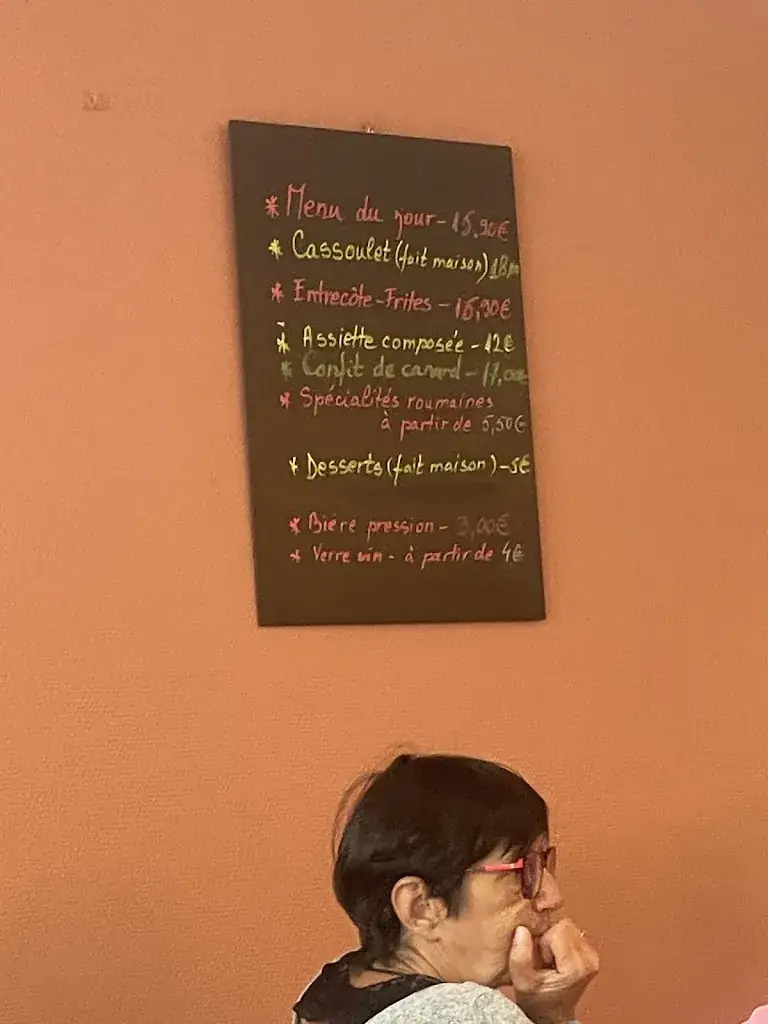 * Menu du jour - 15.90€
* Cassoulet (fait maison)
* Entrecôte-Frites - 15,90€
* Assiette composée - 12€
* Confit de canard - 17,00€
* Spécialités roumaines
à partir de 5,50€
* Desserts (fait maison) - 5€
* Bière pression - 3,00€
* Verre vin - à partir de 4€